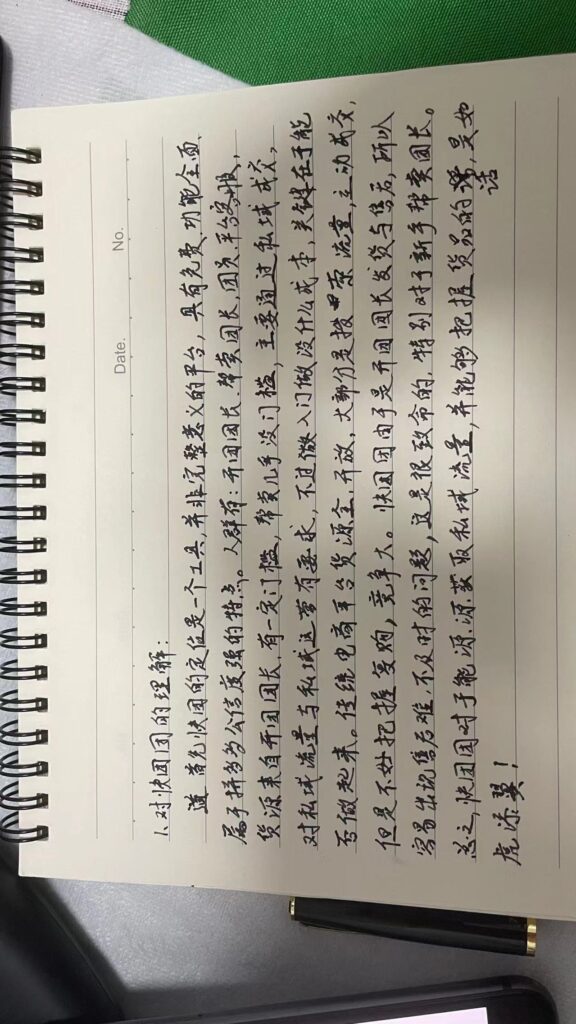 Date.
No.
1、对快团团的理解:
首先快团的定位是一个工具,并非完整意义的平台,具有免费、功能全面、
属于拼多多公信度强的特点。人群有:开团团长、帮卖团长、团员、平台客服,
货源来自开团团长、有一定门槛,帮卖几乎没门槛,主要通过私域成交,
对私域流量与私域运营有要求,不过做入门做没什么成本,关键在于能
否做起来。传统电商平台货源全开放,大部分是搜索流量,主动成交,
但是不好把握复购,竞争大。快团团由于是开团团长发货与售后,所以
容易出现售后难、不及时的问题,这是很致命的,特别对于新手帮卖团长。
总之,快团团对于能源源获取私域流量,并能够把握货品的话,是如
虎添翼!